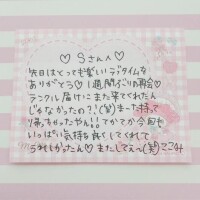 ♡ Sさんへ ♡
先日はとっても楽しいデイタイムを
ありがとう♡ 1週間ぶりの再会♡
ランクル届けにまた来てくれたん
じゃなかったの?!(笑) また持って
帰っちゃったやん!! てかてか今回も
いっぱい気持ち良くしてくれて
うれしかったん♡ またしてえへ(笑) ここみ